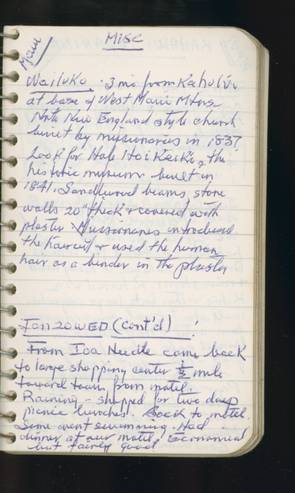 Maui
Misc
Wailuku - 3 mi from Kahului
at base of West Maui Mtns.
Note New England style church
built by missionaries in 1837.
Look for Hale Hoikeike, the
historic museum built in
1841. Sandlwood beams, stone
walls 20" thick & covered with
plaster. Missionaries introduced
the haircut & used the human
hair as a binder in the plaster
Jan 20 WED (cont'd)
From Iao Needle came back
to large shopping center ½ mile
toward town from motel.
Raining - shopped for two days
picnic lunches. Back to motel
Some went swimming. Had
dinner at our motel, economical
but fairly good